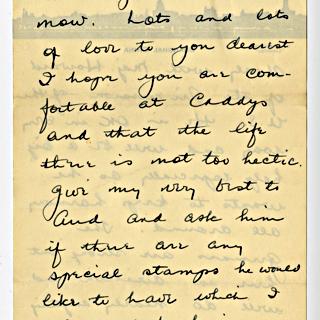 now. Lots and lots
of love to you dearest
I hope you are com-
fortable at Caddys
and that the life
there is not too hectic.
Give my very best to
Aud and ask him
if there are any
special stamps he would
like to have which I